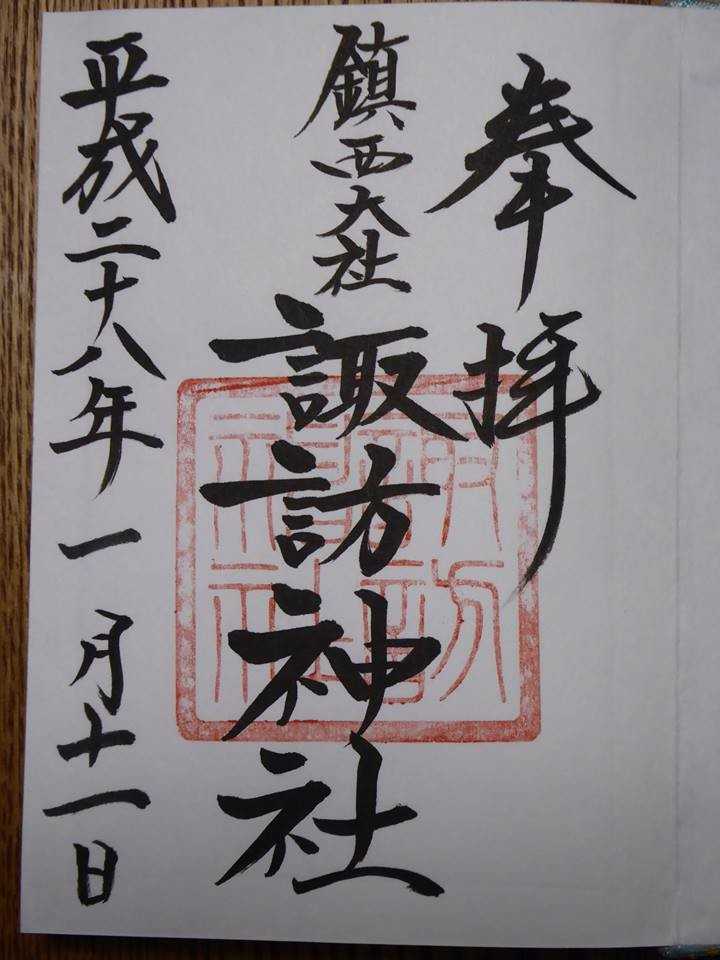 奉拝
鎮西大社
諏訪神社
平成二十八年一月十一日
諏訪神社